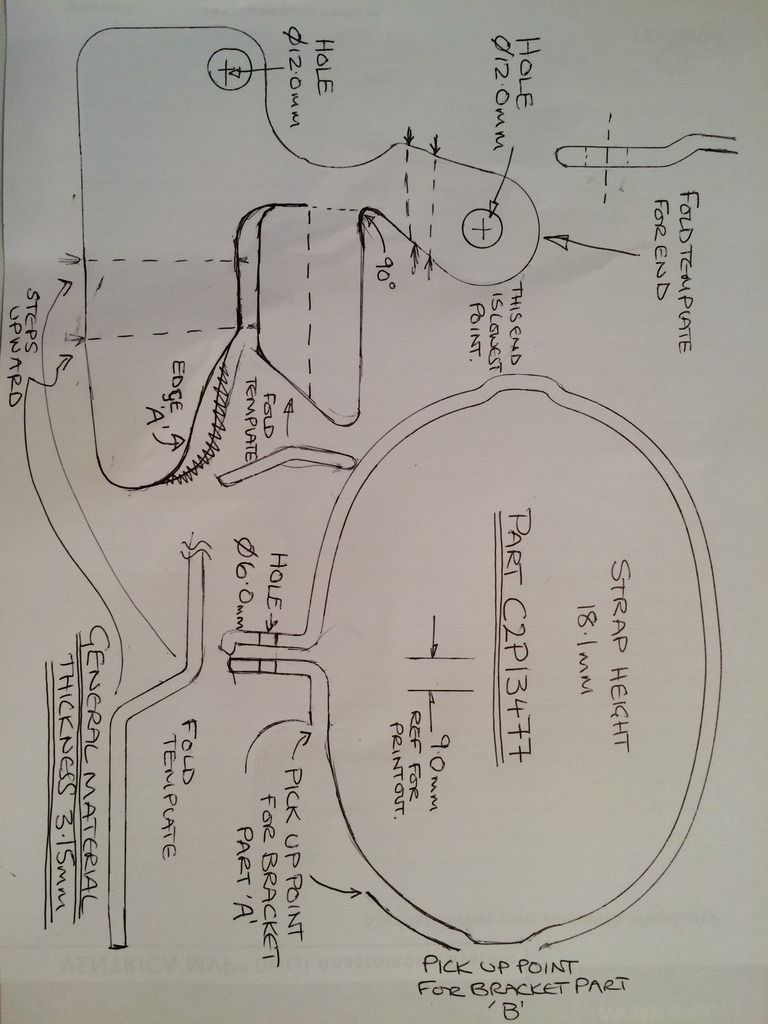 HOLE
Ø12.0mm
HOLE
Ø12.0mm
FOLD TEMPLATE
FOR END
90°
THIS END
IS LOWEST
POINT.
STEPS
UPWARD
EDGE
'A'
FOLD
TEMPLATE
PART C2P13477
STRAP HEIGHT
18.1mm
HOLE
Ø6.0mm
9.0mm
REF FOR
PRINTOUT.
GENERAL MATERIAL
THICKNESS 3.15mm
FOLD
TEMPLATE
PICK UP POINT
FOR BRACKET
PART 'A'
PICK UP POINT
FOR BRACKET PART
'B'
VENTRICA MVP